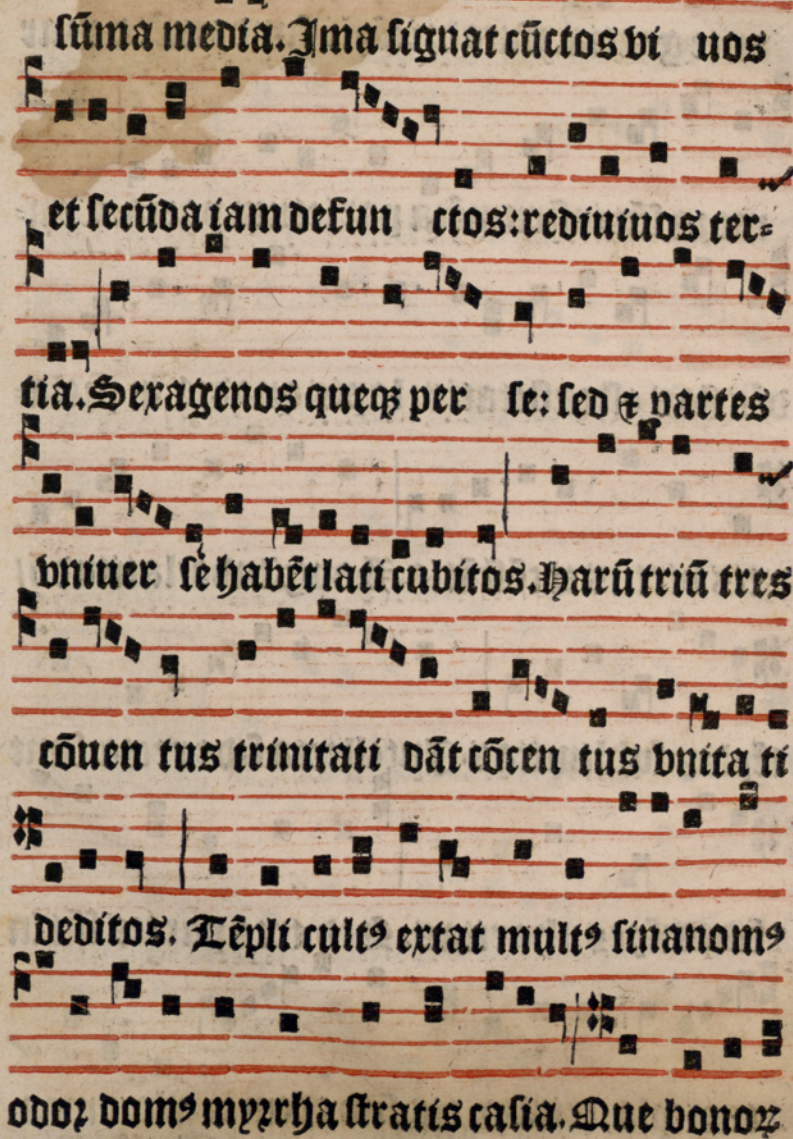 ſūma media. Ima ſignat cūctos vi uos
et ſecūda iam defun ctos: rediuiuos ter⸗
tia. Sexagenos queqꝫ per ſe: ſed ⁊ partes
vniuer ſe habēt lati cubitos. Harū triū tres
cōuen tus trinitati dāt cōcen tus vnita ti
deditos. Tēpli cultꝰ extat multꝰ ſinanomꝰ
odoꝛ domꝰ myꝛrha ſtratis caſia. Que bonoꝝ